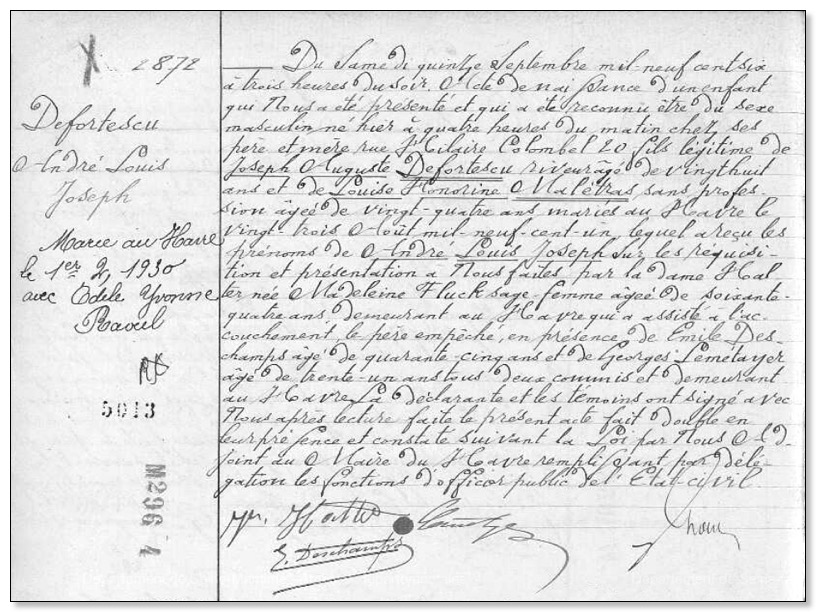 2872
Defortescu
André Louis
Joseph
Marié au Havre
le 1er 2, 1930
avec Edile Yvonne
Raoul
5013
M296 4
Du Samedi quinze Septembre mil-neuf cent six
à trois heures du soir. Acte de naissance d'un enfant
qui Nous a été présenté et qui a été reconnu être du sexe
masculin né hier à quatre heures du matin chez ses
père et mère rue St Hilaire Colombel 20 fils légitime de
Joseph Auguste Defortescu riveur âgé de vingt huit
ans et de Louise Honorine Malétras, sans profes-
sion âgée de vingt-quatre ans mariés au Havre le
vingt trois Août mil-neuf-cent-un, lequel a reçu les
prénoms de André Louis Joseph sur les réquisi-
tion et présentation à Nous faites par la dame Hal
ter née Madeleine Fluck sage-femme âgée de soixante-
quatre ans demeurant au Havre qui a assisté à l'ac-
couchement, le père empêché, en présence de Emile Des-
champs âgé de quarante-cinq ans et de Georges Lemétayer
âgé de trente-un ans tous deux commis et demeurant
au Havre, La déclarante et les témoins ont signé avec
Nous après lecture faite le présent acte fait double en
leur présence et constaté suivant la Loi par Nous Ad-
joint au Maire du Havre remplissant par délé-
gation les fonctions d'officier public de l'Etat-civil.
E. Deschamps